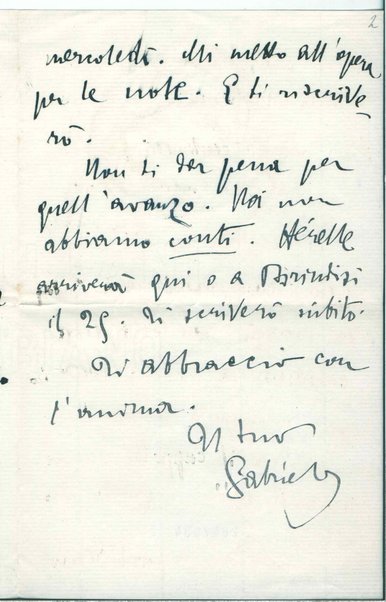 2
mercoledì. Mi metto all'opera
per le note. E ti riscrive-
rò.
Non ti dar pena per
quell'avanzo. Noi non
abbiamo conti. Hérelle
arriverà qui o a Brindisi
il 25. Ti scriverò subito.
Ti abbraccio con
l'anima.
Il tuo
Gabriele